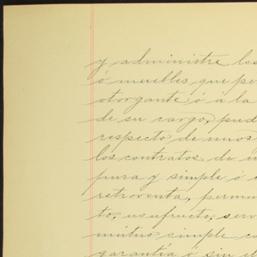 y administre los
ó muebles, que per
otorgante ó á la
de su cargo, pud
respecto de unos
los contratos de
pura y simple ó
retroventa, permu
to, usufructo, serv
mútuo simple co
garantía ó sin